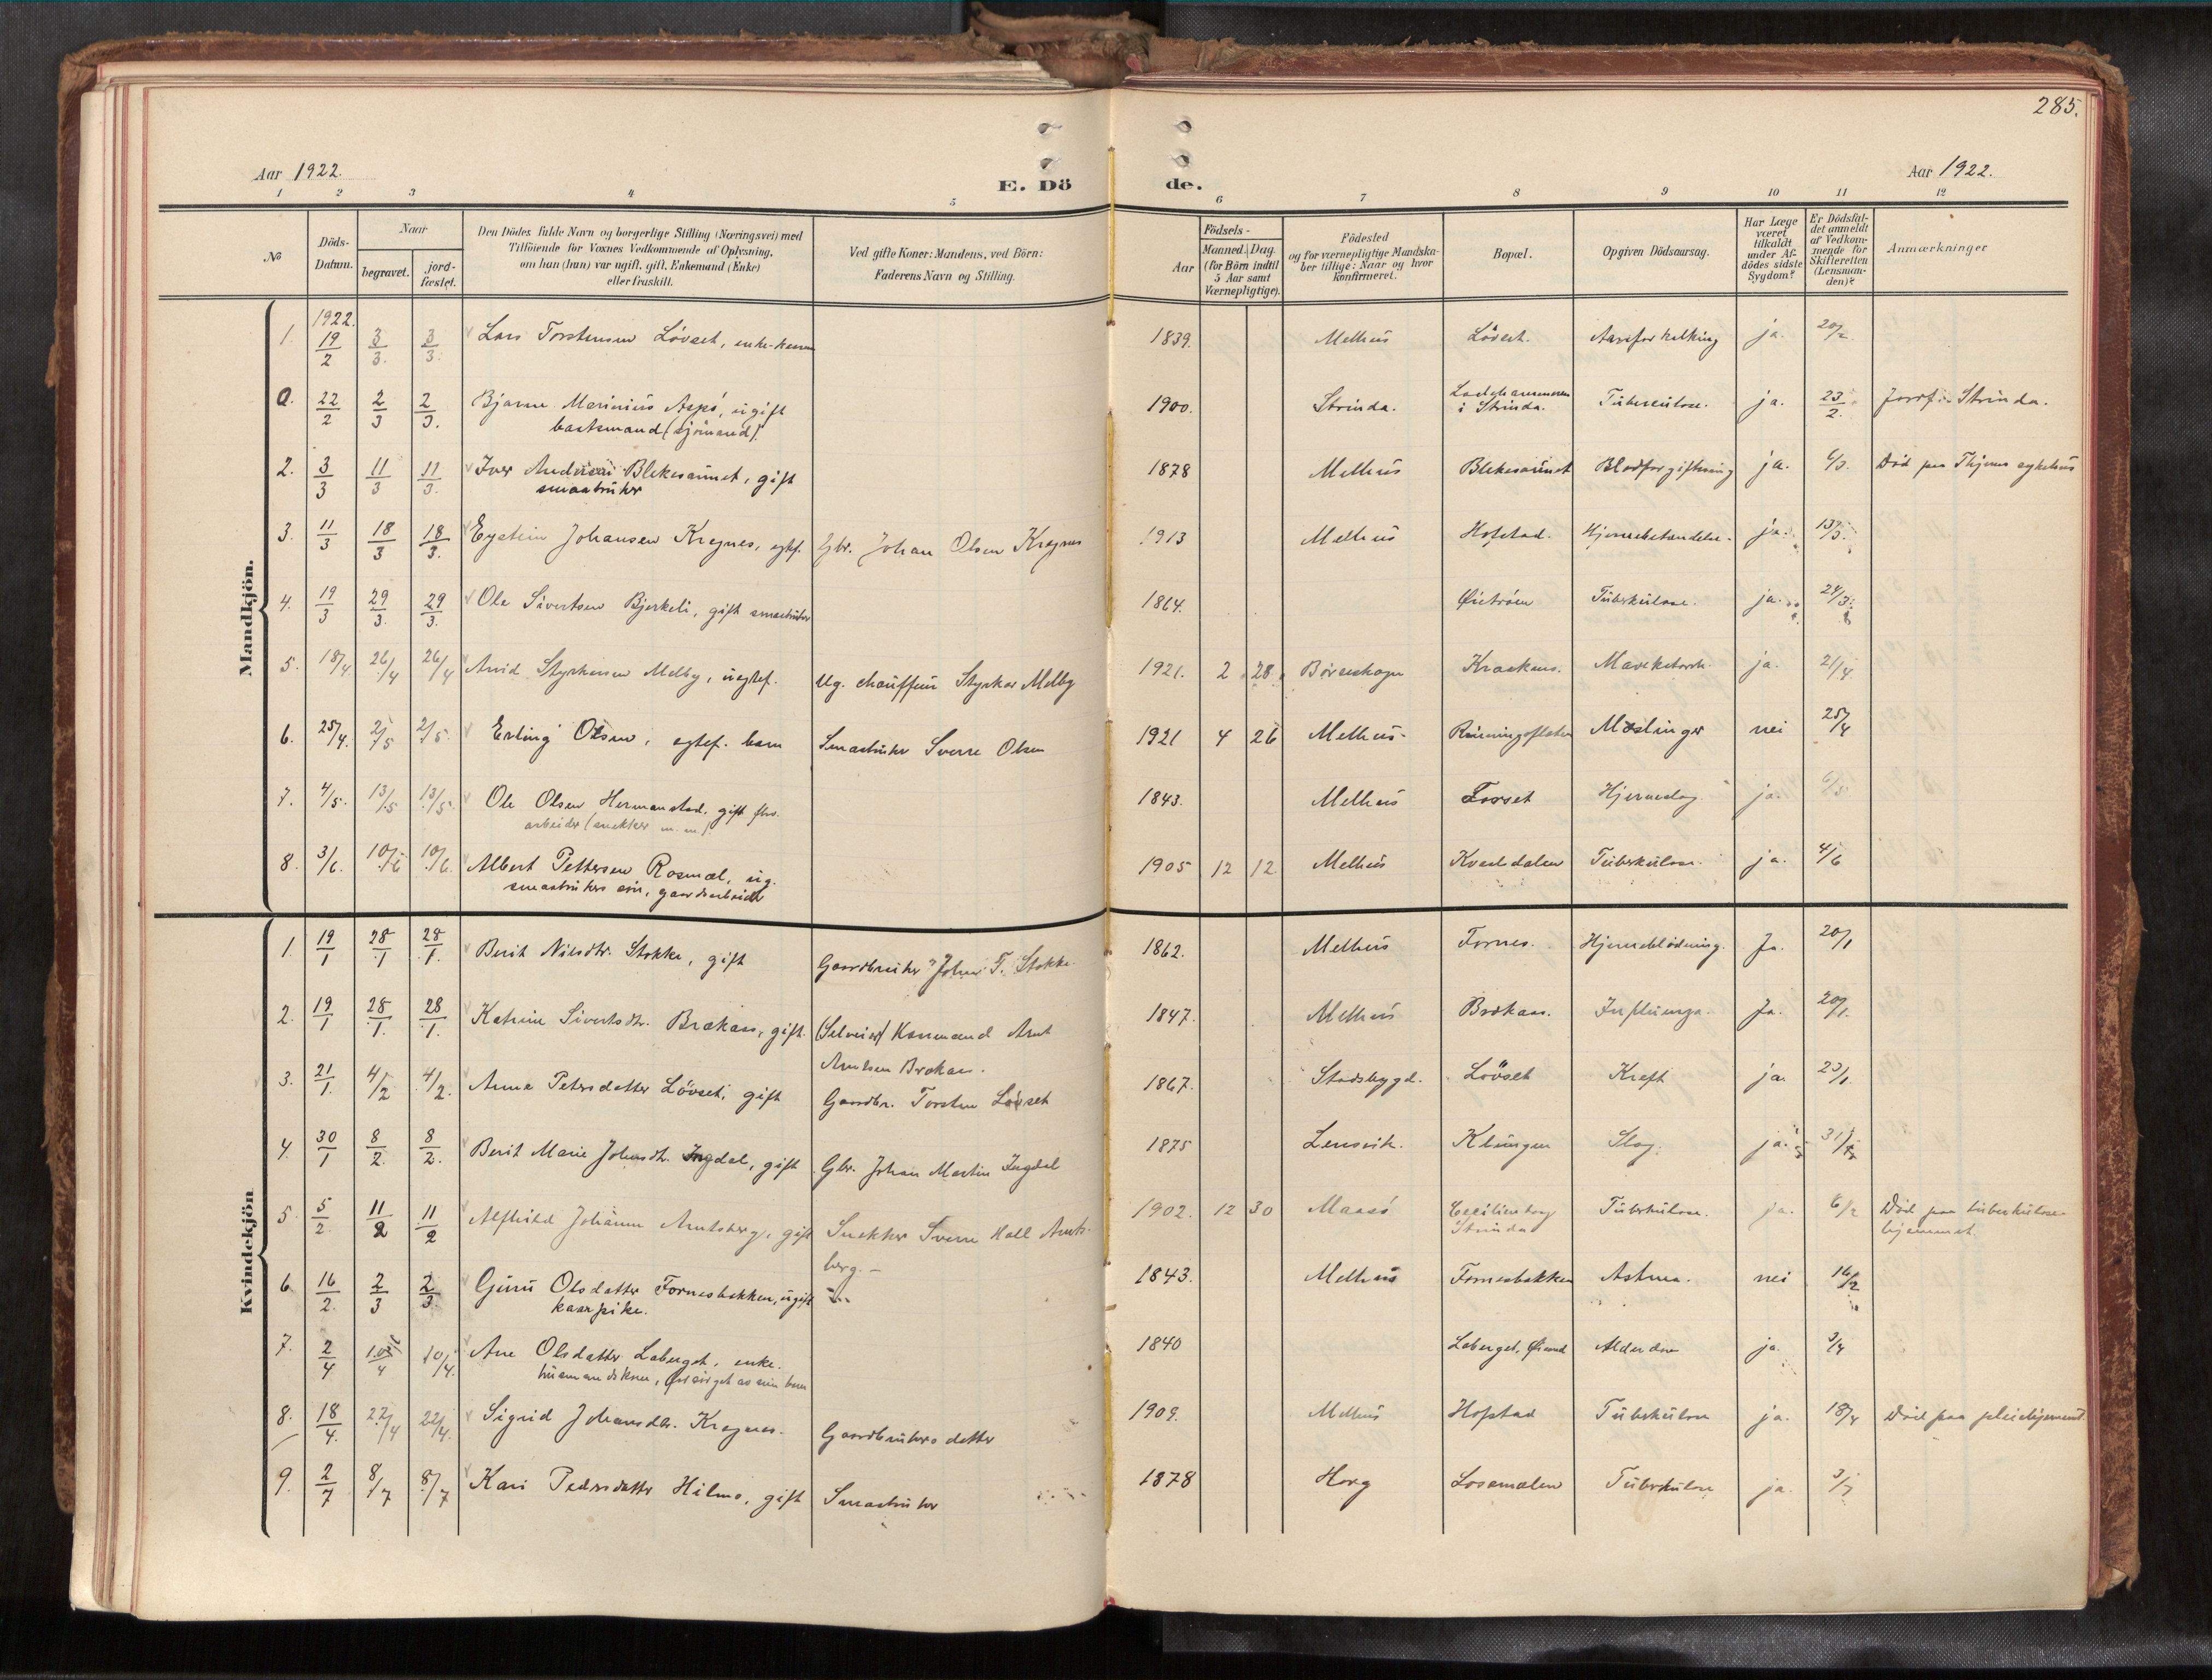 285.
Aar 1922.
E. Dö de.
Aar 1922.
1 2 3 4 5 6 7 8 9 10 11 12
No
Döds-Datum.
Naar
begravet.
jord-fæstet.
Den Dödes fulde Navn og borgerlige Stilling (Næringsvei) med
Tilföiende for Voxnes Vedkommende af Oplysning,
om han (hun) var ugift, gift, Enkemand (Enke)
eller fraskilt.
Ved gifte Koner: Mandens, ved Börn:
Faderens Navn og Stilling.
Födsels-
Aar
Maaned. Dag.
(for Börn indtil
5 Aar samt
Værnepligtige).
Födested
og for værnepligtige Mandska-
ber tillige: Naar og hvor
konfirmeret.
Bopæl.
Opgiven Dödsaarsag.
Har Læge
været
tilkaldt
under Af-
dödes sidste
Sygdom?
Er Dödsfal-
det anmeldt
af Vedkom-
mende for
Skifteretten
(Lensman-
den)?
Anmærkninger
Mandkjön.
1922.
1. 19/2 3/3 3/3. Lars Torstensen Løvset, enke-mann 1839. Melhus Løvset. Aareforkalkning ja. 20/2
0. 22/2 2/3 2/3. Bjarne Marinius Aspö, ugift 1900. Strinda. Ladehammeren Tuberculose. ja. 23/2. Jordf. i Strinda.
baatsmand (sjömand). i Strinda.
2. 3/3 11/3 11/3. Iver Andersen Blekesaunet, gift 1878 Melhus Blekesaunet Blodforgiftning ja. 6/3. Död paa sykehus
smaabruker
3. 11/3 18/3 18/3. Eystein Johansen Kregnes, egtef. Gbr. Johan Olsen Kregnes 1913 Melhus Hofstad. Hjernebetændelse. ja. 13/3.
4. 19/3 29/3. 29/3. Ole Sivertsen Bjerkeli, gift smaabruker 1864. Øietrøen Tuberkulose. ja. 24/3.
5. 18/4 26/4 26/4 Arvid Styrkersen Melby, uegtef. Ug. chauffeur Styrker Melby 1921. 2 28. Børseskogn Kraakens. ja. 21/4.
6. 25/4. 2/5 2/5. Erling Olsen, egtef. barn Smaabruker Sverre Olsen 1921 4 26 Melhus Mæslinger nei 25/4
7. 4/5. 13/5 13/5. Ole Olsen Hermanstad, gift fhv. 1843. Melhus Forset Hjerneslag. ja. 6/5.
arbeider (snekker m.m.)
8. 3/6. 10/6 10/6. Albert Pettersen Rosmæl, ug. 1905 12 12. Melhus Kvendalen Tuberkulose. ja. 4/6
smaabrukers søn, gaardsarbeider
Kvindekjön
1. 19/1 28/1 28/1. Berit Nilsdtr. Stokke, gift Gaardbruker Johan T. Stokke. 1862. Melhus Fornes. Hjerneblödning. Ja. 20/1
2. 19/1 28/1. 28/1. Katrine Sivertsdtr. Brækaas, gift. (Selveier) Kaarmand Arnt 1847. Melhus Brækaas. Influenza. Ja. 20/1.
Arntsen Brækaas.
3. 21/1. 4/2 4/2. Anna Petersdatter Lövset, gift Gaardbr. Torsten Lövset 1867. Stadsbygd. Lövset Kreft ja. 23/1.
4. 30/1 8/2. 8/2. Berit Marie Johnsdt. Ingdal, gift Gbr. Johan Martin Ingdal 1875 Lensvik. Klungen Slag. ja. 31/1
5. 5/2. 11/2 11/2 Alfhild Johanne Arntsberg, gift Snekker Sverre Hall Arnts- 1902. 12 30 Maasö Cecilienborg Tuberkulose. ja. 6/2 Död paa tuberkulose-
berg. Strinda hjemmet.
6. 16/2. 2/3 2/3. Guru Olsdatter Fornesbakken, ugift 1843. Melhus Fornesbakken Astma. nei 16/2
kaarpike.
7. 2/4 10/4 10/4. Ane Olsdatter Laberget, enke. 1840 Laberget, Alderdom ja. 3/4
husmandskone, forsörget av sine barn
8. 18/4. 22/4 22/4. Sigrid Johansdtr. Kregnes. Gaardbrukers datter 1909. Melhus Hofstad Tuberkulose ja. 18/4 Död paa pleiehjemmet.
9. 2/7 8/7 8/7 Kari Pedersdatter Hilmo, gift Smaabruker 1878 Horg Losemælen Tuberkulose ja. 3/7